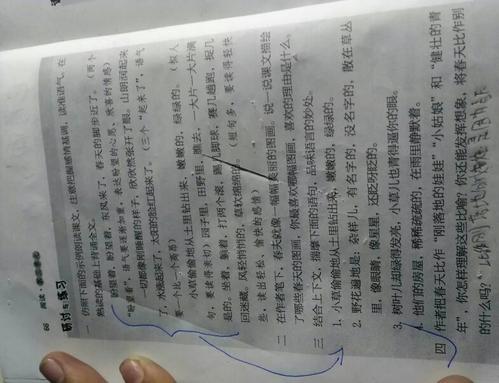 66 阅读·
研讨与练习
一 仿照下面的示例朗读课文,注意把握感情基调,读准语气,在
熟读的基础上背诵全文。
盼望着,盼望着,东风来了,春天的脚步近了。(两个
“盼望着”,语气要逐渐加重,表达盼望的心愿、欣喜的情感)
一切都像刚睡醒的样子,欣欣然张开了眼。山朗润起来
了,水涨起来了,太阳的脸红起来了。(三个“起来了”,语气
要一个比一个高昂)
小草偷偷地从土里钻出来,嫩嫩的,绿绿的。(拟人
句,要读得亲切)园子里,田野里,瞧去,一大片一大片满
是的。坐着,躺着,打两个滚,踢几脚球,赛几趟跑,捉几
回迷藏。风轻悄悄的,草软绵绵的。(短句多,要读得轻快
些,读出轻松、愉快的感情)
二 在作者笔下,春天就像一幅幅美丽的图画。说一说课文描绘
了哪些春天的图画,你最喜欢哪幅图画,喜欢的理由是什么。
三 结合上下文,揣摩下面的语句,品味语言的妙处。
1. 小草偷偷地从土里钻出来,嫩嫩的,绿绿的。
2. 野花遍地是:杂样儿,有名字的,没名字的,散在草丛
里,像眼睛,像星星,还眨呀眨的。
3. 树叶儿却绿得发亮,小草儿也青得逼你的眼。
4. 他们的房屋,稀稀疏疏的,在雨里静默着。
四 作者把春天比作“刚落地的娃娃”“小姑娘”和“健壮的青
年”,你怎样理解这些比喻?你还能发挥想象,将春天比作别
的什么吗?